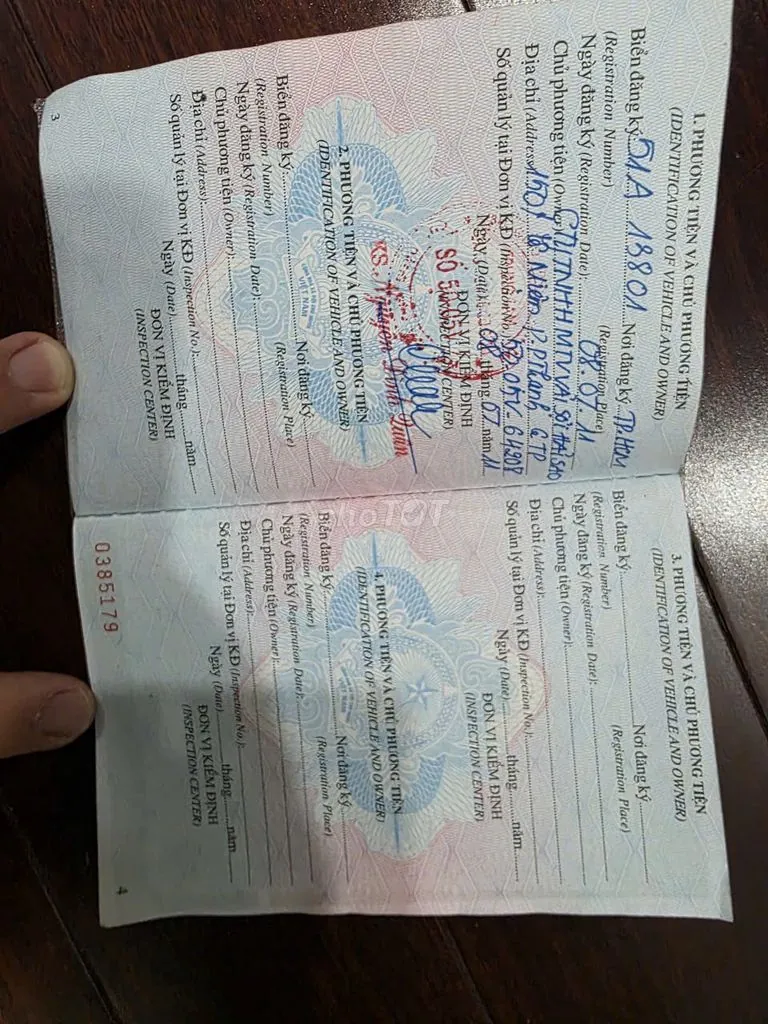 1. PHƯƠNG TIỆN VÀ CHỦ PHƯƠNG TIỆN
(IDENTIFICATION OF VEHICLE AND OWNER)
Biển đăng ký 51A 13801 Nơi đăng ký TP. HCM
(Registration Number) (Registration Place)
Ngày đăng ký (Registration Date): 08.07.11
Chủ phương tiện (Owner) CTY TNHH MTV VẢI SỢI HAI SAO
Địa chỉ (Address) 150/ P.PThạnh Q.TP
Số quản lý tại Đơn vị KĐ (Inspection No.)
Ngày (Date) 08 tháng 07 năm 11
ĐƠN VỊ KIỂM ĐỊNH
(INSPECTION CENTER)
KS. Nguyễn Đình Quân
2. PHƯƠNG TIỆN VÀ CHỦ PHƯƠNG TIỆN
(IDENTIFICATION OF VEHICLE AND OWNER)
Biển đăng ký Nơi đăng ký
(Registration Number) (Registration Place)
Ngày đăng ký (Registration Date):
Chủ phương tiện (Owner):
Địa chỉ (Address):
Số quản lý tại Đơn vị KĐ (Inspection No.):
Ngày (Date) tháng năm
ĐƠN VỊ KIỂM ĐỊNH
(INSPECTION CENTER)
3
3. PHƯƠNG TIỆN VÀ CHỦ PHƯƠNG TIỆN
(IDENTIFICATION OF VEHICLE AND OWNER)
Biển đăng ký Nơi đăng ký
(Registration Number) (Registration Place)
Ngày đăng ký (Registration Date):
Chủ phương tiện (Owner):
Địa chỉ (Address):
Số quản lý tại Đơn vị KĐ (Inspection No.):
Ngày (Date) tháng năm
ĐƠN VỊ KIỂM ĐỊNH
(INSPECTION CENTER)
4. PHƯƠNG TIỆN VÀ CHỦ PHƯƠNG TIỆN
(IDENTIFICATION OF VEHICLE AND OWNER)
Biển đăng ký Nơi đăng ký
(Registration Number) (Registration Place)
Ngày đăng ký (Registration Date):
Chủ phương tiện (Owner):
Địa chỉ (Address):
Số quản lý tại Đơn vị KĐ (Inspection No.):
Ngày (Date) tháng năm
ĐƠN VỊ KIỂM ĐỊNH
(INSPECTION CENTER)
0385179
4
choTOT